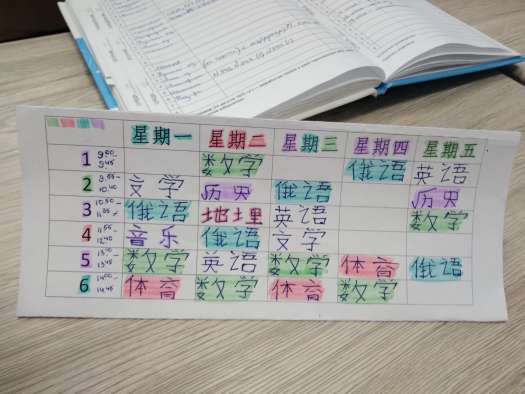 星期一 星期二 星期三 星期四 星期五
1 9:00- 9:45 数学 俄语 英语
2 9:55- 10:40 文学 历史 俄语 历史
3 10:50- 11:35 俄语 地理 英语 数学
4 11:55- 12:40 音乐 俄语 文学
5 13:00- 13:45 数学 英语 数学 体育 俄语
6 14:00- 14:45 体育 数学 体育 数学